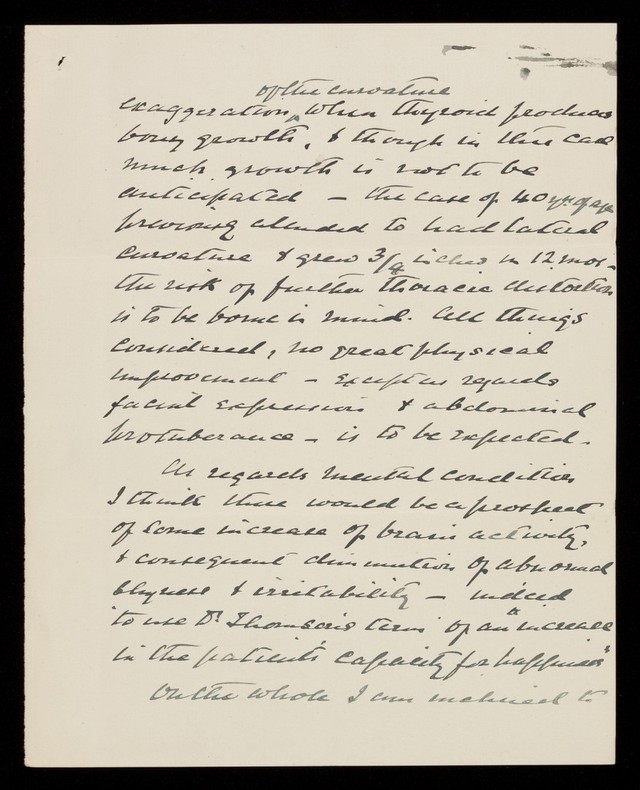 of the curvature
exaggeration, when thyroid produces
bony growth, & though in this case
much growth is not to be
anticipated – the case of 40 yrs of age
previously alluded to had lateral
curvature & grew 3/4 inches in 12 mos –
the risk of further thoracic distortion
is to be borne in mind. All things
considered, no great physical
improvement – except as regards
facial expression & abdominal
protuberance – is to be expected.
As regards mental condition
I think there would be a prospect
of some increase of brain activity,
& consequent diminution of abnormal
shyness & irritability – indeed
to use Dr. Thomson's term of an "increase
in the patient's capacity for happiness"
On the whole I am inclined to